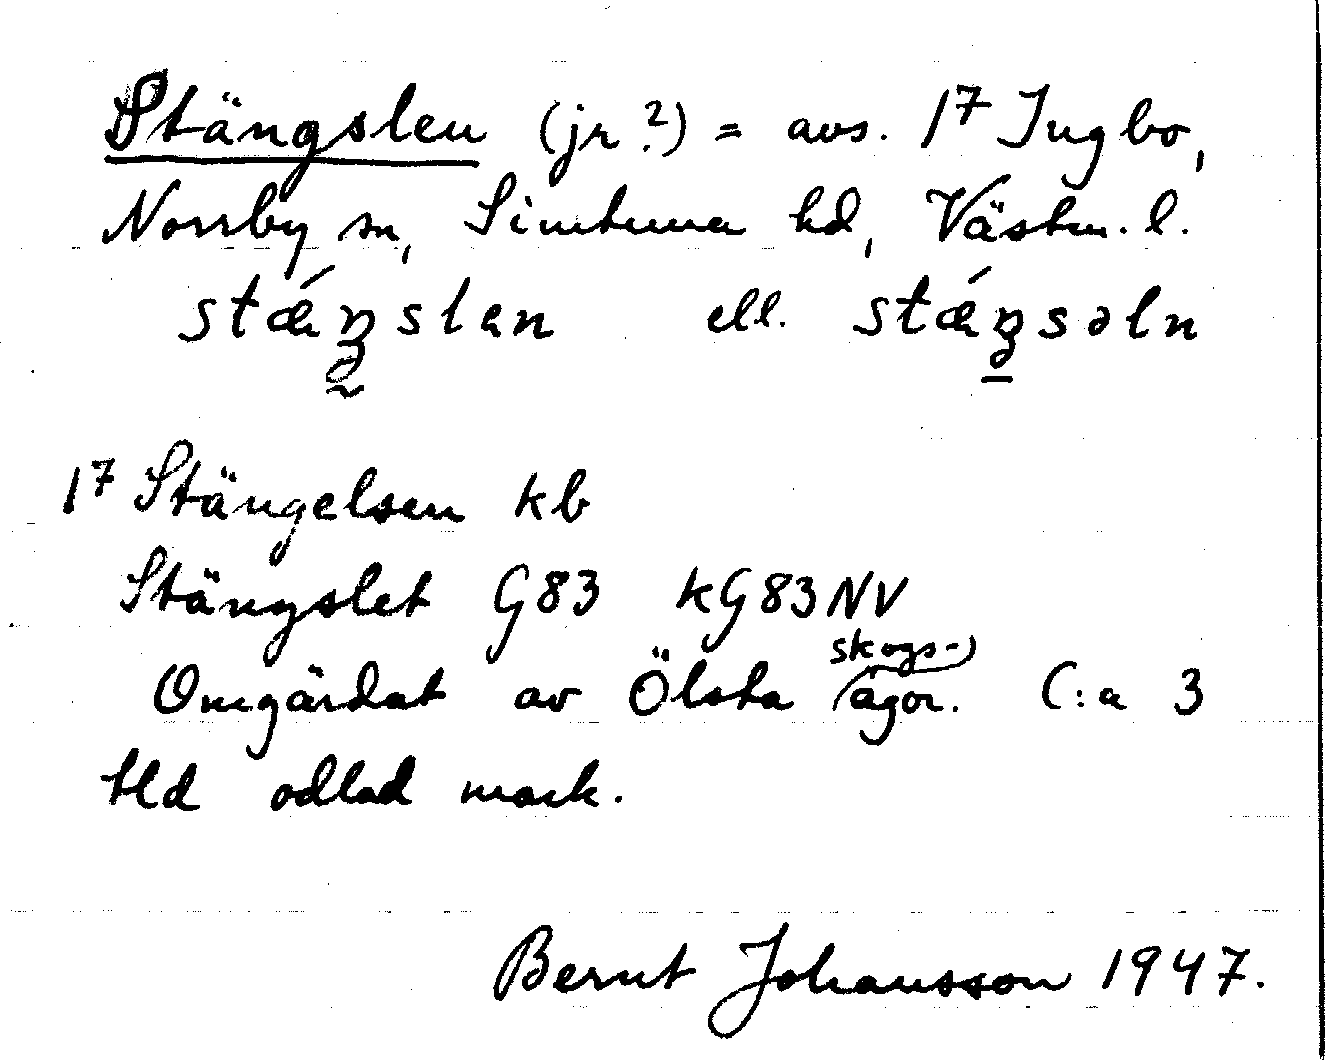 Stängslen (jr ?) = avs. 1⁷ Ingbo,
Norrby sn, Simtuna hd, Västm. l.
stǽŋslen ell. stǽŋsəln
1⁷ Stängelsen kb
Stängslet G83 kG83NV
Omgärdat av Ölsta skogs-ägor. C:a 3
tld odlad mark.
Bernt Johansson 1947.